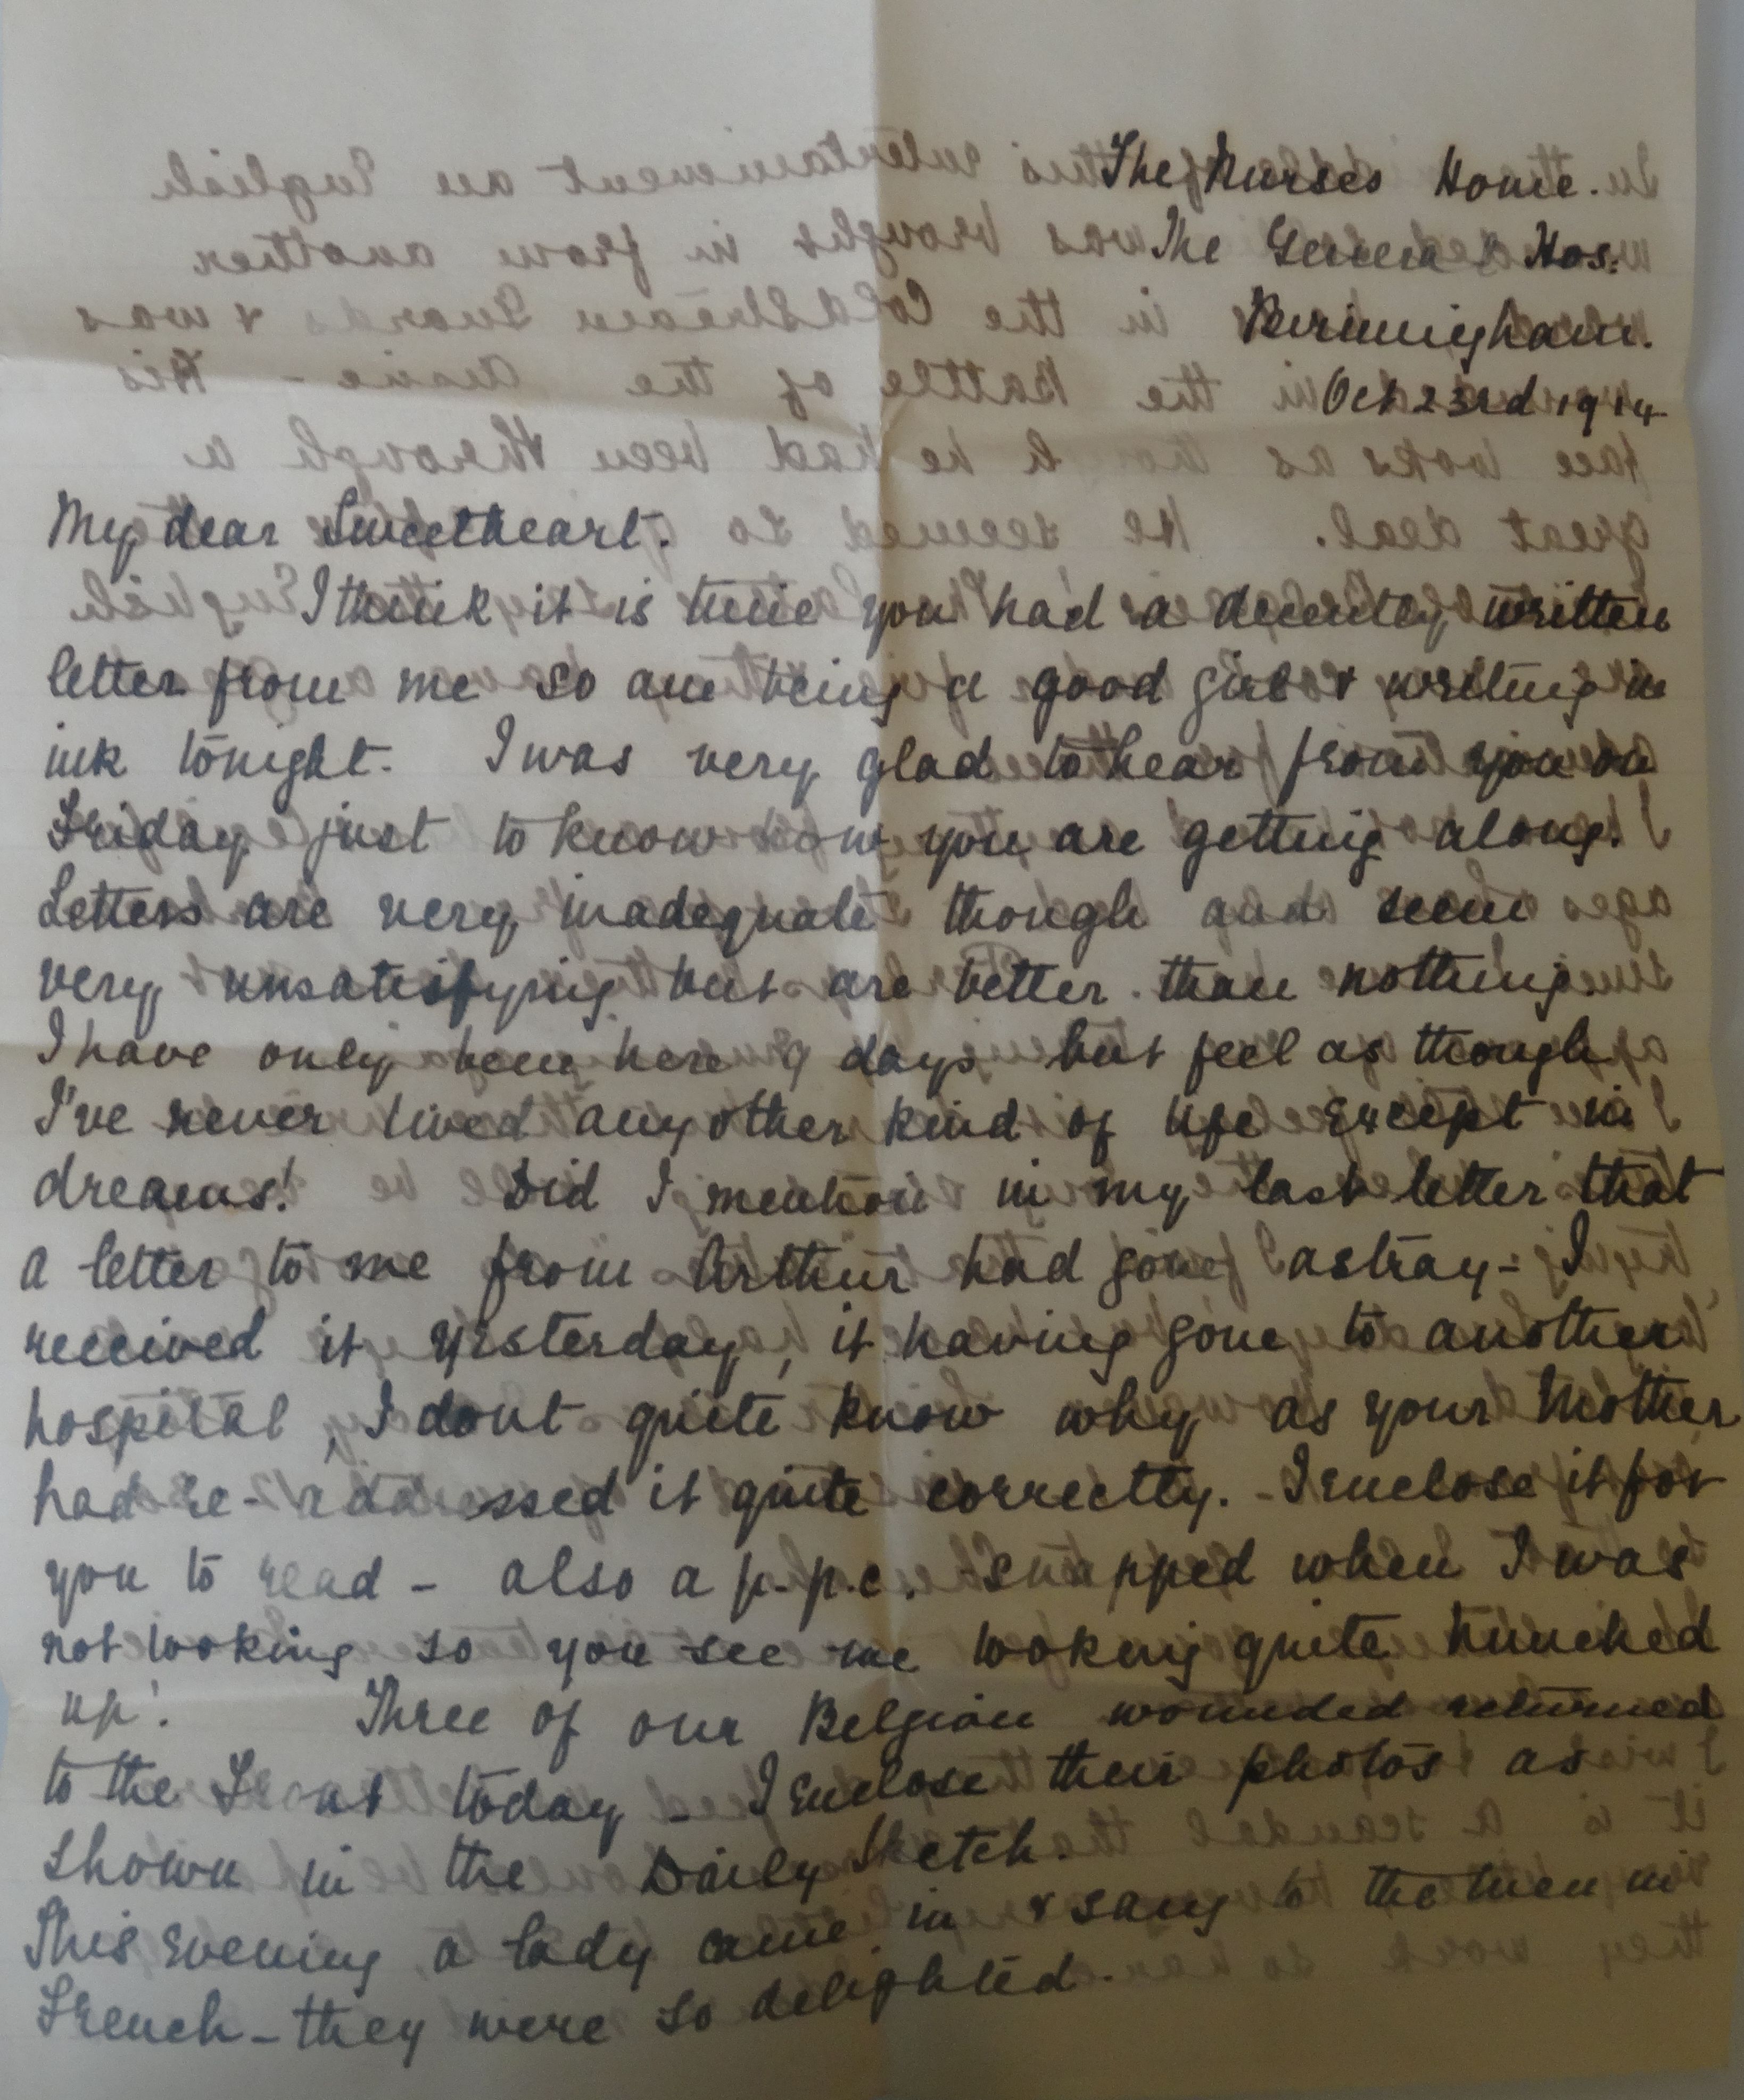 The Nurses Home.
The General Hos:
Birmingham.
Oct 23rd 1914
My dear Sweetheart.
I think it is time you had a decently written
letter from me so am being a good girl & writing in
ink tonight. I was very glad to hear from you on
Friday just to know how you are getting along.
Letters are very inadequate though and seem
very unsatisfying but are better than nothing.
I have only been here 9 days but feel as though
I've never lived any other kind of life except in
dreams! Did I mention in my last letter that
a letter to me from Arthur had gone astray - I
received it yesterday, it having gone to another
hospital, I dont quite know why as your Mother
had re-addressed it quite correctly. - I enclose it for
you to read - also a p.p.c. snapped when I was
not looking so you see me looking quite hunched
up! Three of our Belgian wounded returned
to the Front today - I enclose their photos as
shown in the Daily Sketch.
This evening a lady came in & sang to the men in
French - they were so delighted.